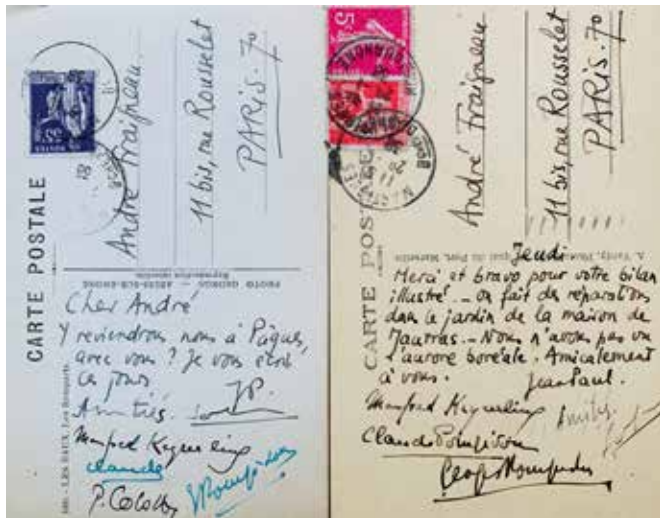 CARTE POSTALE
André Fraigneau
11 bis, rue Rousselet
PARIS. 7o
PHOTO GEORGE - ARLES-SUR-RHONE
Reproduction interdite
LES BAUX. Les Remparts
Cher André
Y reviendrons nous à Pâques,
avec vous ? Je vous écris
ces jours
Amitiés. JP.
Manfred Keyserling
Claude
GPompidou
CARTE POSTALE
André Fraigneau
11 bis, rue Rousselet
PARIS. 7o
Quai du Port, Marseille
Jeudi
Merci et bravo pour votre bilan
illustré. _ On fait des réparations
dans le jardin de la maison de
Maurras. _ Nous n'avons pas vu
l'aurore boréale. Amicalement
à vous. Jean Paul.
Manfred Keyserling
Amitiés
Claude Pompidou
Georges Pompidou